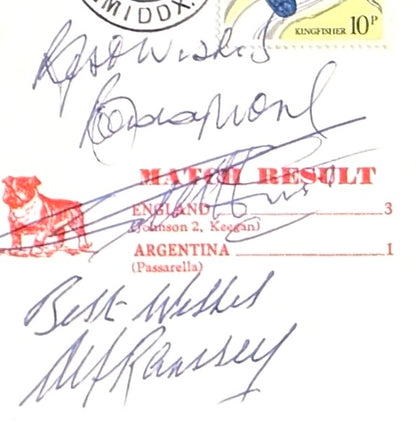 MIDDX.
KINGFISHER 10P
Best Wishes
MATCH RESULT
ENGLAND 3
(Johnson 2, Keegan)
ARGENTINA 1
(Passarella)
Best Wishes
Alf Ramsey